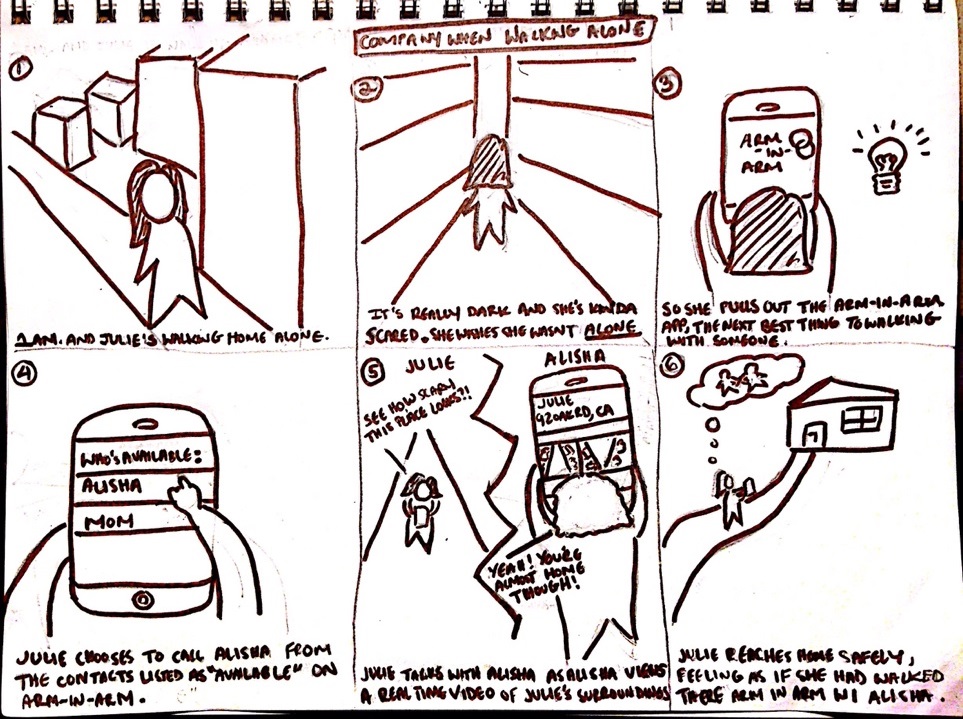 COMPANY WHEN WALKING ALONE
1
1AM. AND JULIE'S WALKING HOME ALONE.
2
IT'S REALLY DARK AND SHE'S KINDA
SCARED. SHE WISHES SHE WASNT ALONE
3
ARM
-IN-
ARM
SO SHE PULLS OUT THE ARM-IN-ARM
APP, THE NEXT BEST THING TO WALKING
WITH SOMEONE.
4
WHO'S AVAILABLE:
ALISHA
MOM
JULIE CHOOSES TO CALL ALISHA FROM
THE CONTACTS LISTED AS "AVAILABLE" ON
ARM-IN-ARM.
5
JULIE
SEE HOW SCARY
THIS PLACE LOOKS?!
ALISHA
JULIE
92OAKRD, CA
YEAH! YOU'RE
ALMOST HOME
THOUGH!
JULIE TALKS WITH ALISHA AS ALISHA VIEWS
A REALTIME VIDEO OF JULIE'S SURROUNDINGS
6
JULIE REACHES HOME SAFELY,
FEELING AS IF SHE HAD WALKED
THERE ARM IN ARM W/ ALISHA.